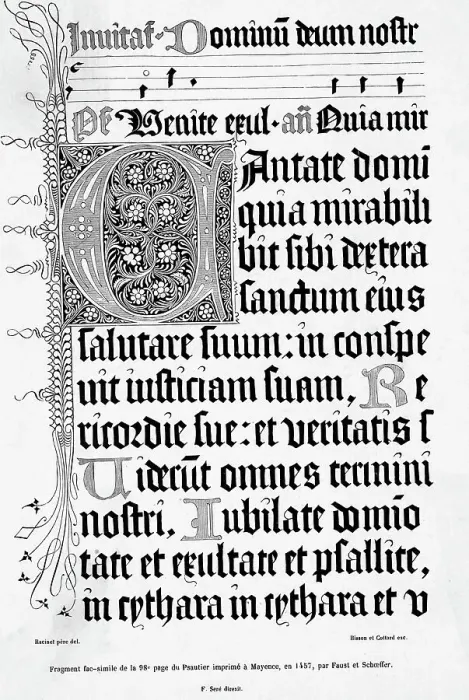 Inuitat̄. Dominū deum nostr
Ps Venite exul· añ Quia mir
CAntate domī
quia mirabili
bit sibi dextera
sanctum eius
salutare suum: in conspe
uit iusticiam suam, Re
ricordie sue: et veritatis s
Uiderūt omnes termini
nostri, Iubilate domīo
tate et exultate et psallite,
in cythara in cythara et v
Racinet père del.
Bisson et Cottard exc.
Fragment fac-simile de la 98e page du Psautier imprimé à Mayence, en 1457, par Faust et Schœffer.
F. Seré direxit.